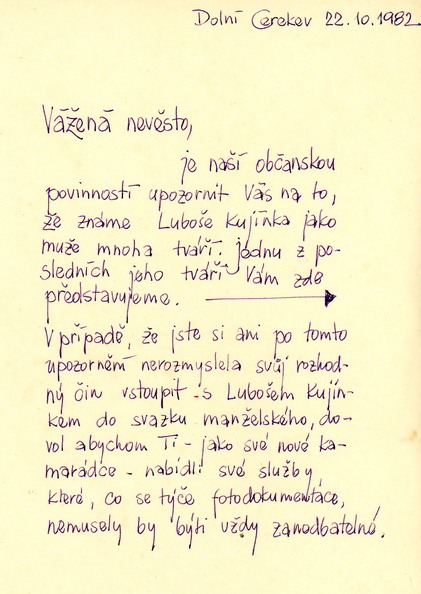 Dolní Cerekev 22.10.1982
Vážená nevěsto,
je naší občanskou
povinností upozornit Vás na to,
že známe Luboše Kujínka jako
muže mnoha tváří. Jednu z po-
sledních jeho tváří Vám zde
představujeme.
V případě, že jste si ani po tomto
upozornění nerozmyslela svůj rozhod-
ný čin vstoupit s Lubošem Kujín-
kem do svazku manželského, do-
vol abychom Ti - jako své nové ka-
marádce - nabídli své služby
které, co se týče fotodokumentace,
nemusely by býti vždy zanedbatelné.